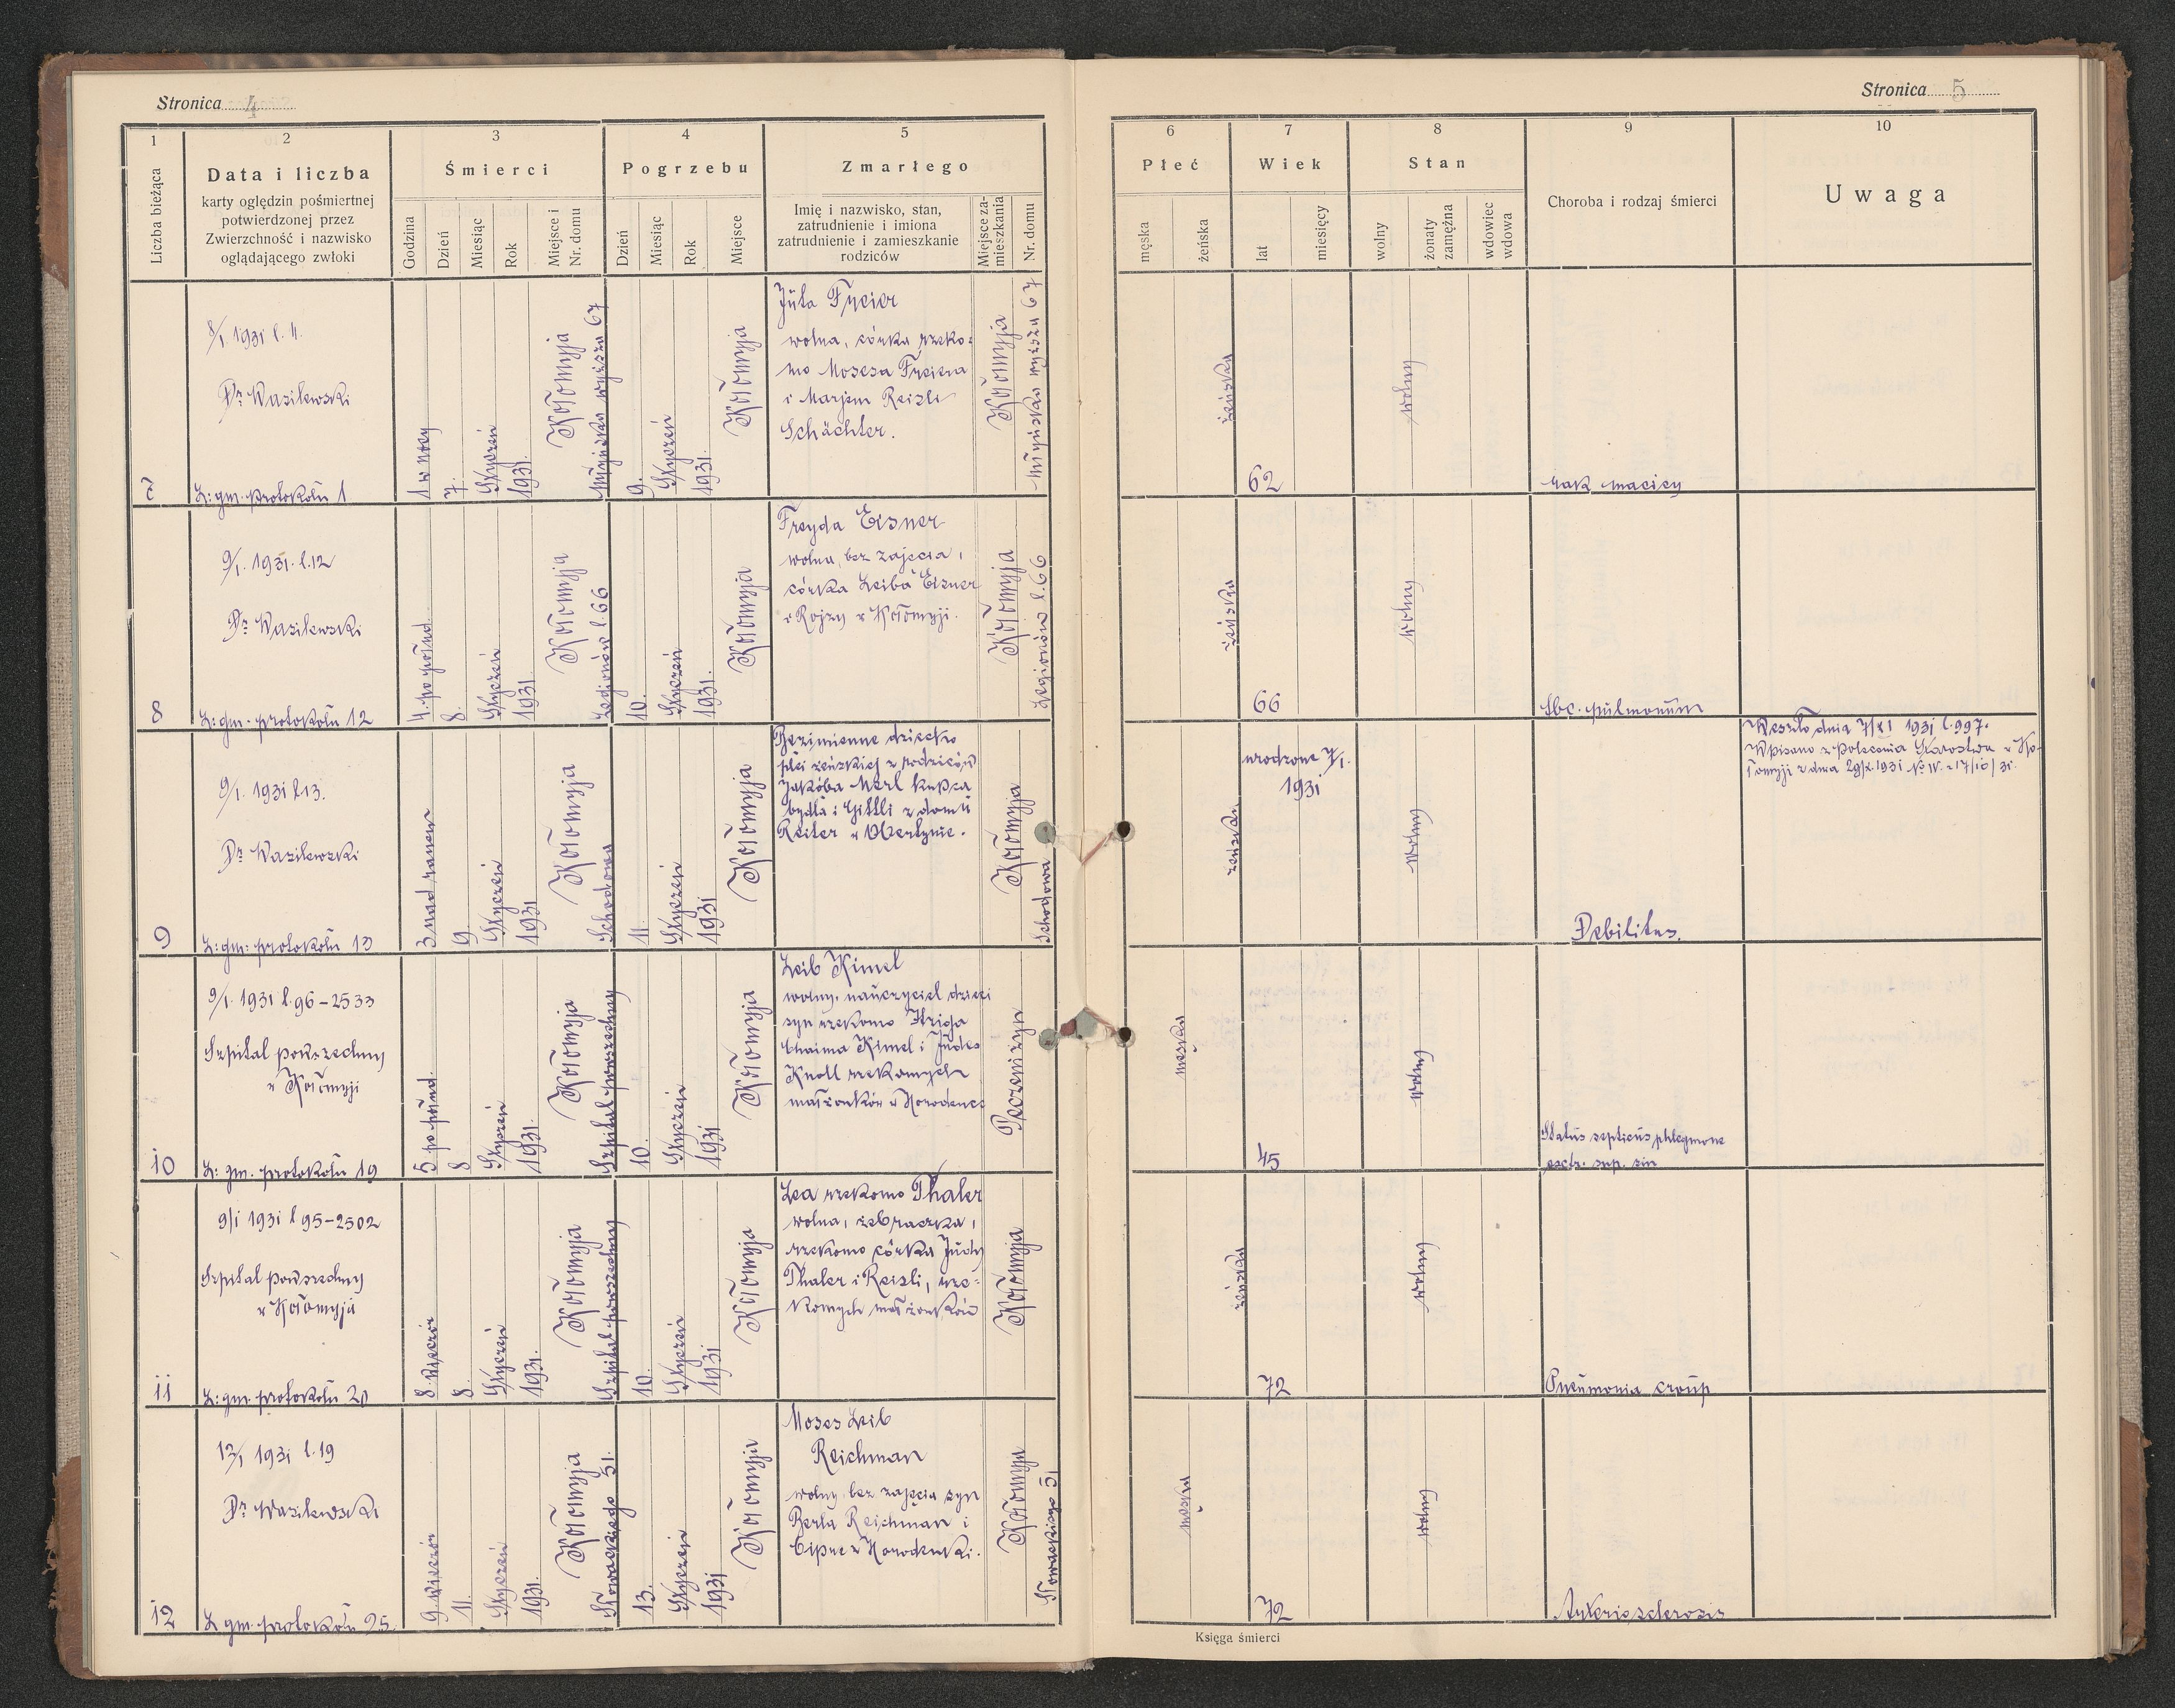 Stronica 4
1
2
3
4
5
Liczba bieżąca
Data i liczba
karty oględzin pośmiertnej
potwierdzonej przez
Zwierzchność i nazwisko
oglądającego zwłoki
Śmierci
Godzina
Dzień
Miesiąc
Rok
Miejsce i
Nr. domu
Pogrzebu
Dzień
Miesiąc
Rok
Miejsce
Zmarłego
Imię i nazwisko, stan,
zatrudnienie i imiona
zatrudnienie i zamieszkanie
rodziców
Miejsce za-
mieszkania
Nr. domu
7
8/1 1931 l. 11.
Dr Wasilewski
L: gm. protokołu 1
1 w nocy
7.
Styczeń
1931.
Kołomyja
Młyńska wyższa 67
9.
Styczeń
1931.
Kołomyja
Jüta Freier
wolna, córka rzeko:
mo Mosesa Freiera
i Marjem Reisli
Schächter.
Kołomyja
Młyńska wyższa 67
8
9/1. 1931. l. 12
Dr Wasilewski
L: gm. protokołu 12
4. po połud.
8.
Styczeń
1931.
Kołomyja
Legionów l. 66
10.
Styczeń
1931.
Kołomyja
Freyda Eisner
wolna, bez zajęcia,
córka Leiba Eisner
i Rojzy z Kołomyji.
Kołomyja
Legionów l. 66
9
9/1. 1931 l. 13.
Dr Wasilewski
L: gm: protokołu 13
3 nad ranem
9.
Styczeń
1931
Kołomyja
Schodowa
11.
Styczeń
1931
Kołomyja
Bezimienne dziecko
płci żeńskiej z rodziców
Jakóba Merl kupca
bydła i Gittli z domu
Reiter z Obertynie.
Kołomyja
Schodowa
10
9/1. 1931 l. 96-2533
Szpital powszechny
w Kołomyji
L: gm. protokołu 19
5 po połud.
8
Styczeń
1931.
Kołomyja
Szpital powszechny
10.
Styczeń
1931
Kołomyja
Leib Kimel
wolny, nauczyciel dzieci
syn rzekomo Hriga
Chaima Kimel i Judes
Knoll rzekomych
małżonków z Horodence
Peczeniżyn
11
9/1 1931 l 95-2502
Szpital powszechny
w Kołomyja
L: gm. protokołu 20
8 wieczór
8.
Styczeń
1931.
Kołomyja
Szpital powszechny
10.
Styczeń
1931
Kołomyja
Lea rzekomo Thaler
wolna, żebraczka,
rzekomo córka Judy
Thaler i Reisli, rze=
komych małżonków
Kołomyja
12
13/1 1931 l. 19
Dr Wasilewski
L gm. protokołu 25
9 wieczór
11.
Styczeń
1931.
Kołomyja
Słowackiego 51.
13.
Styczeń
1931
Kołomyja
Moses Leib
Reichman
wolny bez zajęcia syn
Berla Reichman i
Cipre z Horodenki.
Kołomyja
Słowackiego 51
Stronica 5
6
7
8
9
10
Płeć
męska
żeńska
Wiek
lat
miesięcy
Stan
wolny
żonaty
zamężna
wdowiec
wdowa
Choroba i rodzaj śmierci
Uwaga
żeńska
62
wolny
rak macicy
żeńska
66
wolny
tbc. pulmonum
żeńska
urodzone 7/1.
1931
wolny
Debilitas.
Weszło dnia 7/XI 1931 l. 997.
Wpisano z polecenia Starostwa w Ko-
łomyji z dnia 29/X. 1931 No IV. 217/10/31.
męska
45
wolny
Status septicus phlegmone
extr. sup. sin
żeńska
72
wolny
Pneumonia croup
męska
72
wolny
Arteriosclerosis
Księga śmierci